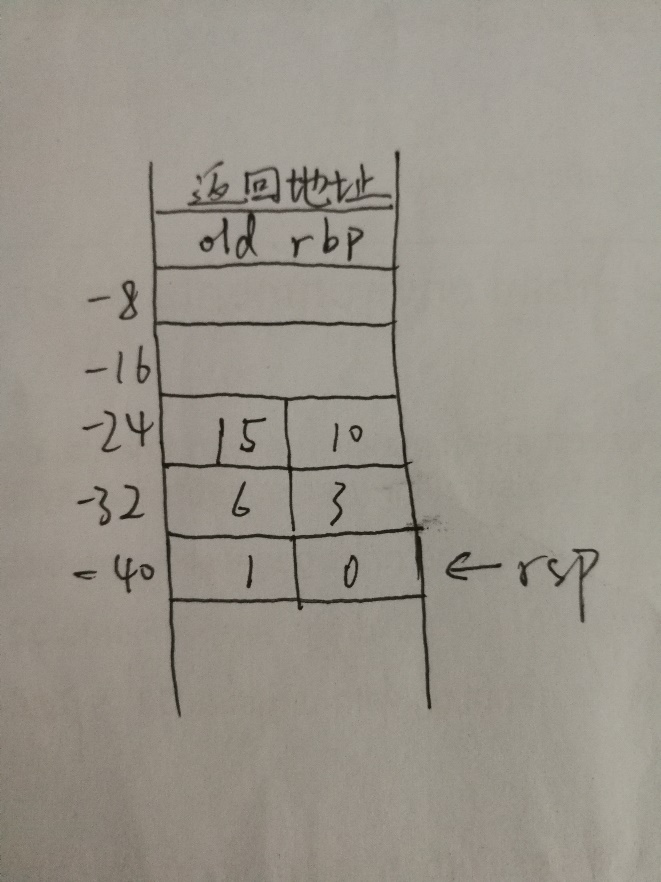 返回地址
old rbp
-8
-16
-24 15 10
-32 6 3
-40 1 0 ← rsp